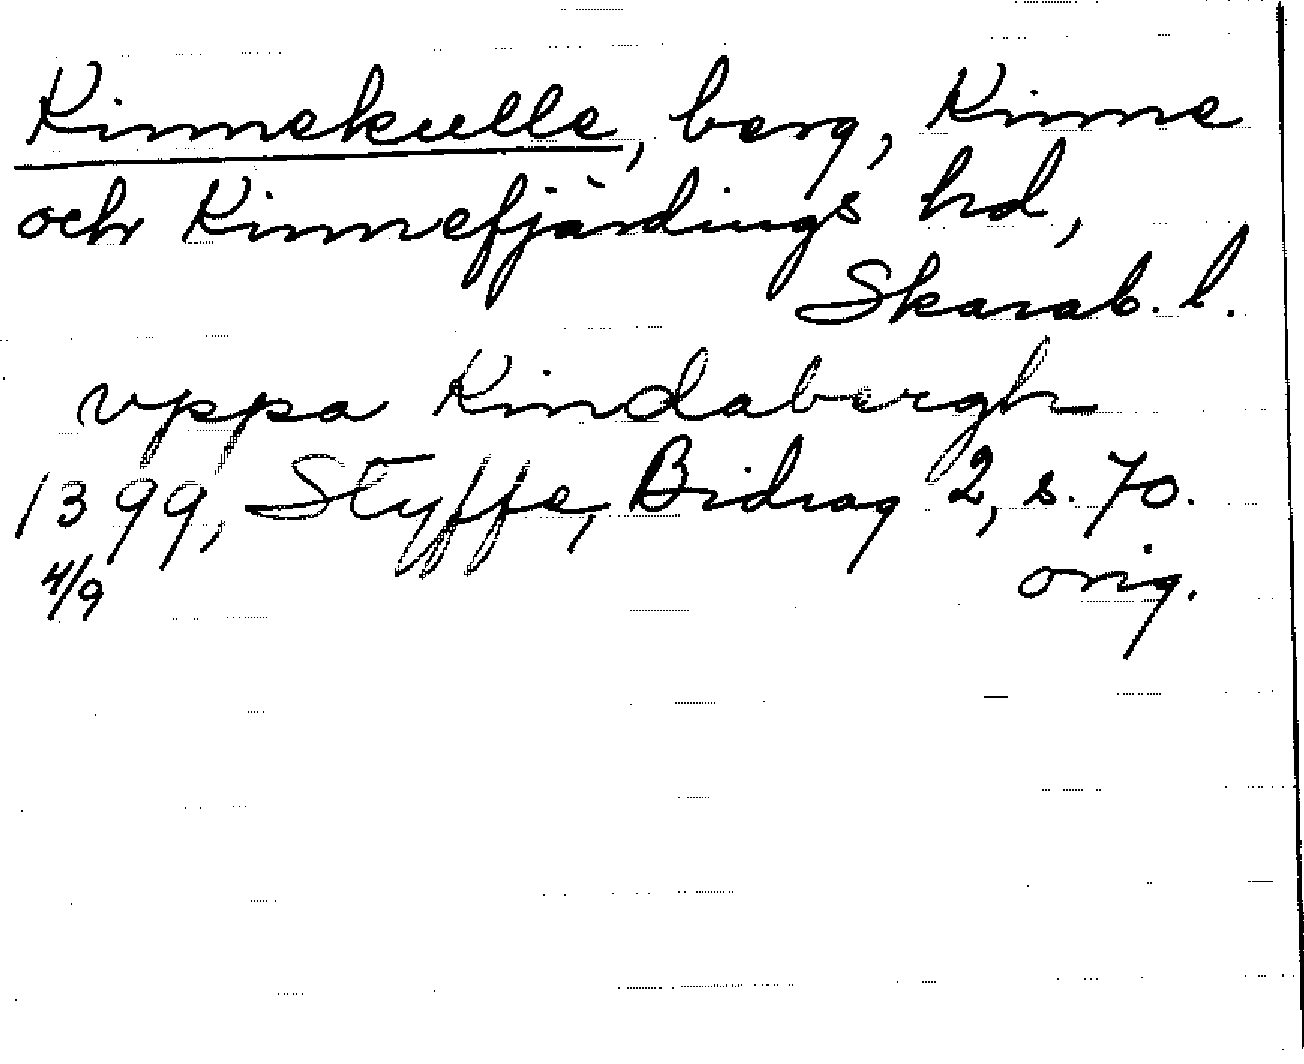 Kinnekulle, berg, Kinne
och Kinnefjärdings hd,
Skarab. l.
vppa Kindabergh
1399, Styffe, Bidrag 2, s. 70.
4/9 orig.